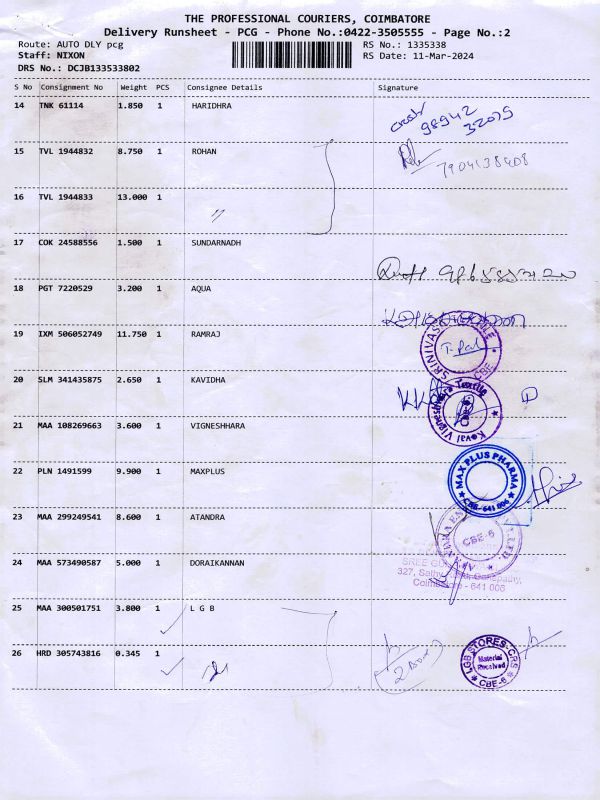 THE PROFESSIONAL COURIERS, COIMBATORE
Delivery Runsheet - PCG - Phone No.:0422-3505555 - Page No.:2
Route: AUTO DLY pcg RS No.: 1335338
Staff: NIXON RS Date: 11-Mar-2024
DRS No.: DCJB133533802
S No Consignment No Weight PCS Consignee Details Signature
14 TNK 61114 1.850 1 HARIDHRA
98942
32075
15 TVL 1944832 8.750 1 ROHAN
7904138408
16 TVL 1944833 13.000 1
"
17 COK 24588556 1.500 1 SUNDARNADH
18 PGT 7220529 3.200 1 AQUA
19 IXM 506052749 11.750 1 RAMRAJ
20 SLM 341435875 2.650 1 KAVIDHA
Koval Vignesh Textile
21 MAA 108269663 3.600 1 VIGNESHHARA
22 PLN 1491599 9.900 1 MAXPLUS
MAX PLUS PHARMA
CBE-641 006
23 MAA 299249541 8.600 1 ATANDRA
CBE-6
24 MAA 573490587 5.000 1 DORAIKANNAN
327, Sathy
Coimbatore - 641 006
25 MAA 300501751 3.800 1 L G B
26 HRD 305743816 0.345 1
2 Box
LGB STORES-CRS
Material
Received
CBE-6